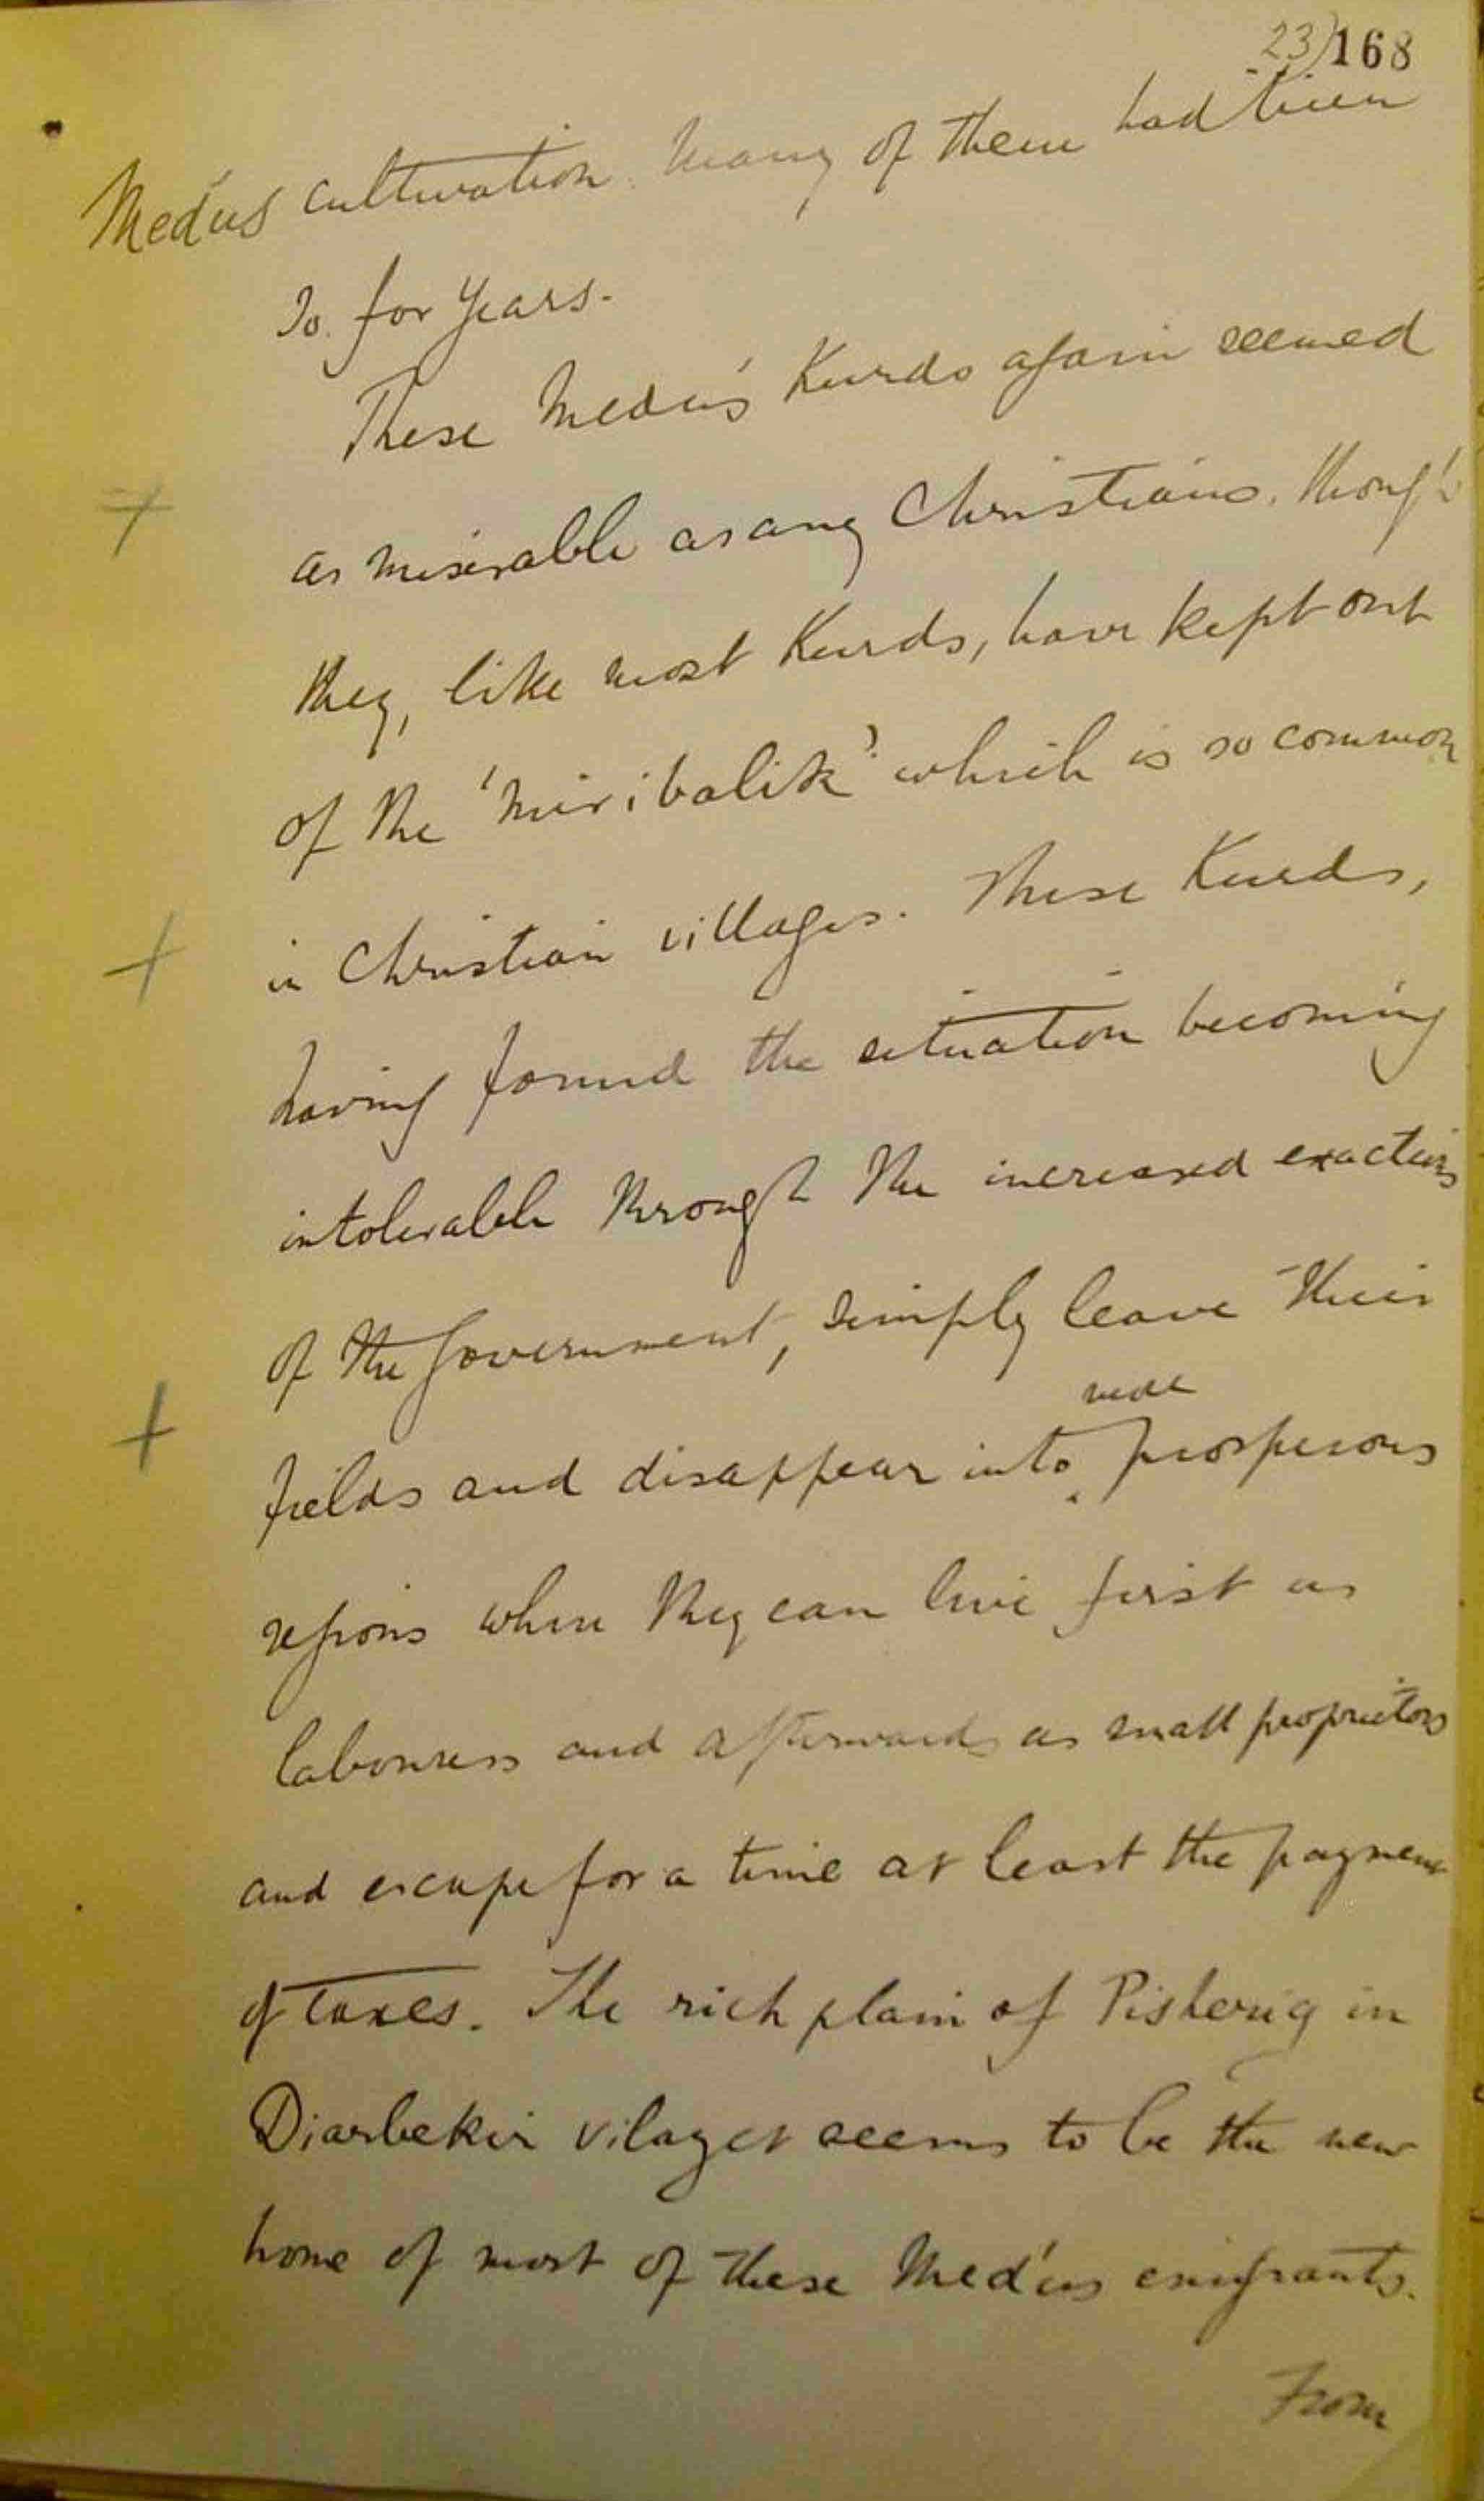 23) 168
Medús cultivation. Many of them had been
so for years.
These Medús Kurds again seemed
as miserable as any Christians, though
they, like most Kurds, have kept out
of the 'miribalik' which is so common
in Christian villages. These Kurds,
having found the situation becoming
intolerable through the increased exactions
of the Government, simply leave their
more
fields and disappear into prosperous
regions where they can live first as
labourers and afterwards as small proprietors
and escape for a time at least the payment
of taxes. The rich plain of in
Diarbekir vilayet seems to be the new
home of most of these Medús emigrants.
From